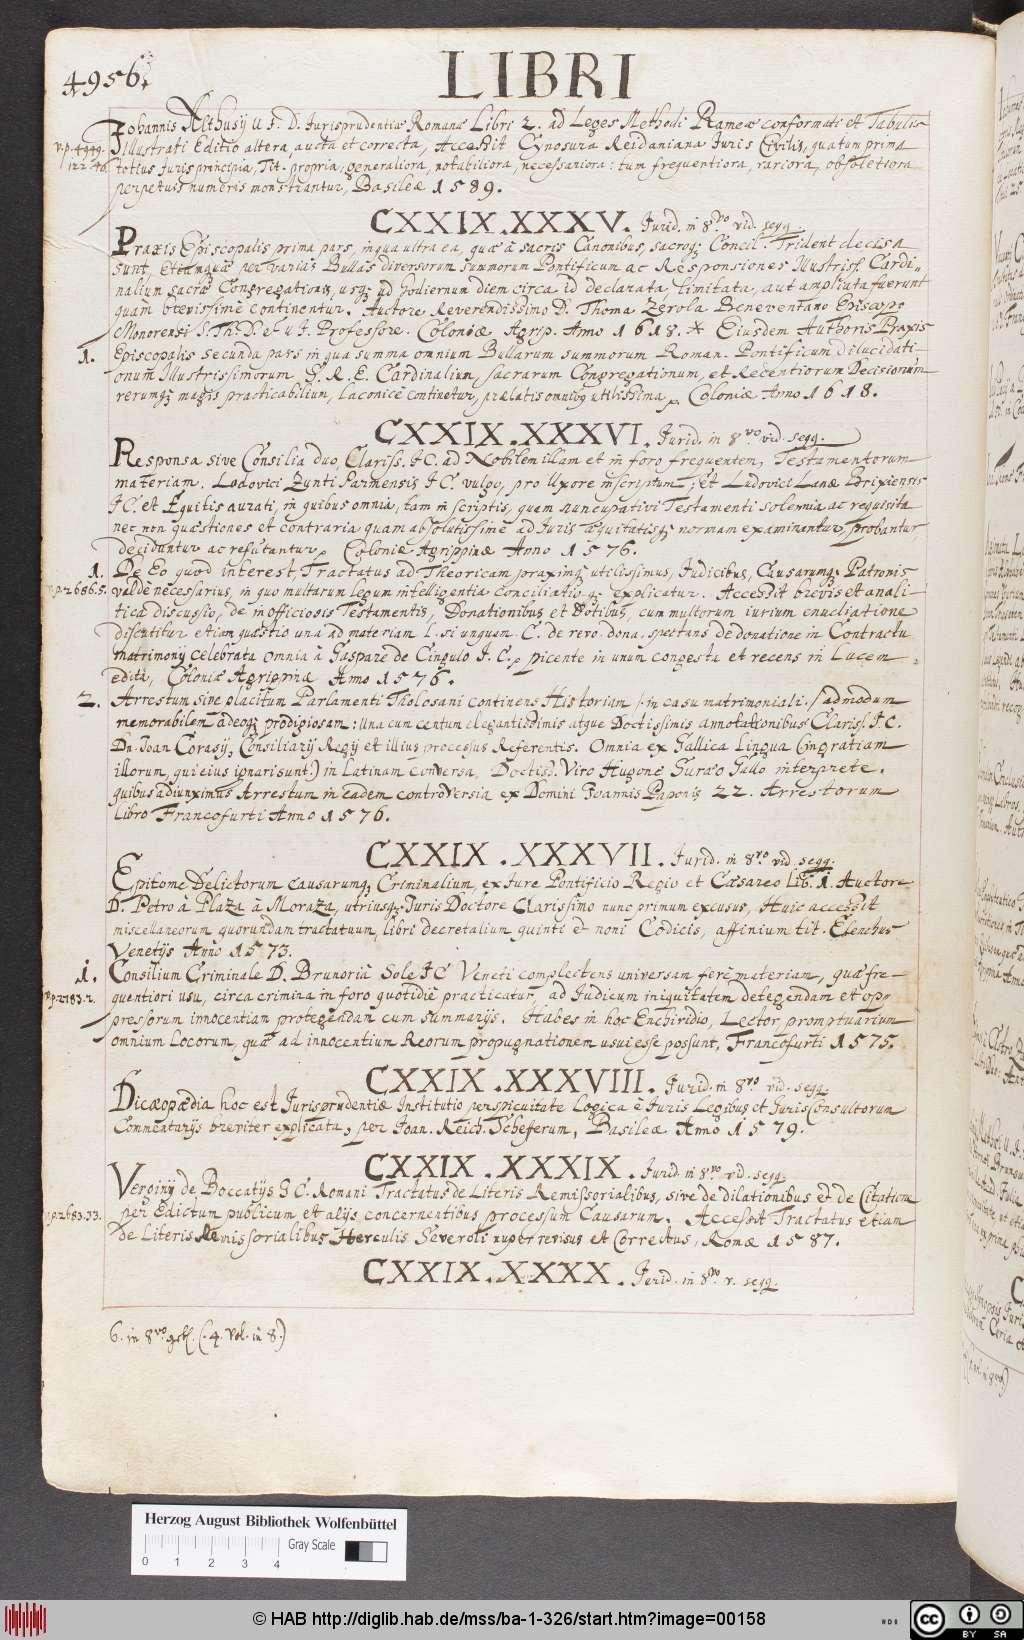 4956.
LIBRI
Johannis Althusij U. J. D. Jurisprudentiæ Romanæ Libri 2. ad Leges Methodi Rameæ conformati et Tabulis
v.p. 4999.
Illustrati Editio altera, aucta et correcta, Accessit Cynosura Reidaniana Juris Civilis, quatum prima
totius Juris principia, Tit. propria, generaliora, notabiliora, necessariora: tum frequentiora, rariora, obsoletiora
perpetuis numeris monstrantur, Basileæ 1589.
CXXIX.XXXV. Jurid. in 8vo vid. seqq.
Praxis Episcopalis prima pars, in qua ultra ea, quæ à sacris Canonibus, sacroq; Concil. Trident decisa
sunt, Eteamquæ per varias Bullas diversorum summorum Pontificum ac Responsiones Illustriss. Cardi-
nalium sacræ Congregationis, usq; ad hodiernum diem circa id declarata limitata, aut ampliata fuerunt
quam brevissimè continentur. Auctore Reverendissimo D. Thoma Zerola Beneventano Episcopo
Monorensi S. Th. D. et U. J. Professore. Coloniæ Agrip. Anno 1618. * Eiusdem Authoris Praxis
1.
Episcopalis secunda pars in qua summa omnium Bullarum summorum Roman. Pontificum dilucidati-
onum Illustrissimorum S. R. E. Cardinalium, sacrarum Congregationum, et Recentiorum Decisionum
rerumq; magis practicabilium, Laconicè continetur, prælatis omnibq utilissima, Coloniæ Anno 1618.
CXXIX.XXXVI. Jurid. in 8vo vid. seqq.
Responsa sive Consilia duo, Clariss. JC. ad Nobilem illam et in foro frequentem, Testamentorum
materiam. Lodovici Zunti Parmensis JC. vulgo, pro Uxore inscriptum; Et Ludovici Lanæ Brixiensis
JC. et Equitis aurati, in quibus omnia, tam in scriptis, quam nuncupativi Testamenti solemnia ac requisita
nec non quæstiones et contraria quam absolutissimè ad Juris æquitatisq; normam examinantur, probantur,
deciduntur ac refutantur, Coloniæ Agrippinæ Anno 1576.
1.
De Eo quod interest, Tractatus ad Theoricam praximq; utilissimus, Judicibus, Causarumq; Patronis
v.p. 2686.5.
valdè necessarius, in quo multarum legum intelligentia Conciliatioq; explicatur. Accessit brevis et anali-
tica discussio, de inofficiosis Testamentis, Donationibus et Dotibus, cum multorum iurium enucliatione
discutitur etiam quæstio una ad materiam l. si unquam. C. de revo. dona. spectans de donatione in Contractu
matrimonij celebrata omnia à Gaspare de Cingulo J. C. picente in unum congesta et recens in Lucem
edita, Coloniæ Agrippinæ Anno 1576.
2.
Arrestum sive placitum Parlamenti Tholosani continens Historiam /: in casu matrimoniali :/ admodum
memorabilem adeoq; prodigiosam: Una cum centum elegantissimis atque Doctissimis annotationibus Clariss. JC.
Dn. Joan Corasij, Consiliarij Regij et illius processus Referentis. Omnia ex Gallica Lingua (in gratiam
illorum, qui eius ignari sunt.) in Latinam conversa, Doctiss. Viro Hugone Suræo Gallo interprete.
quibus adiunximus Arrestum in eadem controversia ex Domini Joannis Paponis 22. Arrestorum
libro Francofurti Anno 1576.
CXXIX.XXXVII. Jurid. in 8vo vid. seqq.
Epitome Delictorum causarumq; Criminalium, ex Jure Pontificio Regio et Cæsareo Lib. 1. Auctore
D. Petro à Plaza à Moraza, utriusq; Juris Doctore Clarissimo nunc primum excusus, Huic accessit
miscellaneorum quorundam tractatuum, libri decretalium quinti et noni Codicis, affinium tit. Elenchus
Venetijs Anno 1573.
1.
Consilium Criminale D. Brunorij à Sole JC Veneti complectens universam ferè materiam, quæ fre-
v.p. 2783.2.
quentiori usu, circa crimina in foro quotidiè practicatur, ad Judicum iniquitatem detegendam et op-
pressorum innocentiam protegendam cum summarijs. Habes in hoc Enchiridio, Lector, promptuarium
omnium locorum, quæ ad innocentium Reorum propugnationem usui esse possunt, Francofurti 1575.
CXXIX.XXXVIII. Jurid. in 8vo vid. seqq.
Dicæopædia hoc est Jurisprudentiæ Institutio perspicuitate Logica è Juris Legibus et Juris Consultorum
Commentarijs breviter explicata, per Joan. Reich. Schefferum, Basileæ Anno 1579.
CXXIX.XXXIX. Jurid. in 8vo vid. seqq.
Verginij de Boccatijs JC. Romani Tractatus de Literis Remissorialibus, sive de dilationibus et de Citatione
v.p. 2683.33.
per Edictum publicum et alijs concernentibus processum Causarum. Accessit Tractatus etiam
de Literis Remissorialibus Herculis Severoli nuper revisus et Correctus, Romæ 1587.
CXXIX.XXXX. Jurid. in 8vo v. seqq.
6. in 8vo (. 4. vol. in 8.)
Herzog August Bibliothek Wolfenbüttel
Gray Scale
0 1 2 3 4
© HAB http://diglib.hab.de/mss/ba-1-326/start.htm?image=00158
cc BY SA